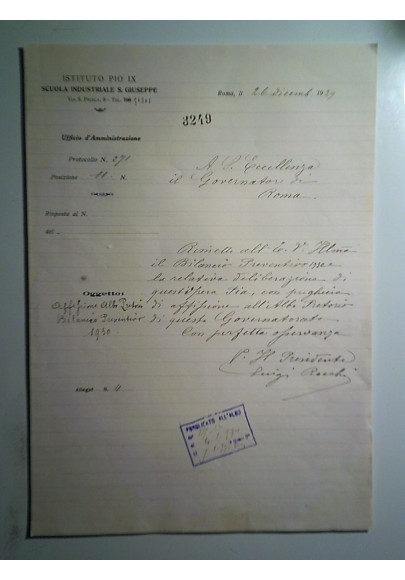 ISTITUTO PIO IX
SCUOLA INDUSTRIALE S. GIUSEPPE
Roma, li 26 dicemb. 1929
3249
Ufficio d'Amministrazione
Protocollo N. 271
Posizione 11 N.
A S. Eccellenza
il Governatore di
Roma.
Risposta al N.
del
Rimetto all' E. V. Ill.ma
il Bilancio Preventivo 1930 e
la relativa deliberazione di
quest'Opera Pia, con preghiera
di affissione all'Albo Pretorio
di questo Governatorato.
Con perfetta osservanza
Oggetto:
Affissione Albo Pretorio
Bilancio Preventivo
1930
P. Il Presidente
Luigi
Allegati N. 4
PUBBLICATO ALL'ALBO